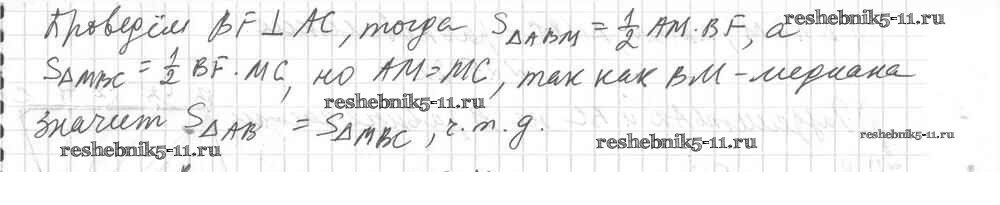 Проведём BF⊥AC, тогда S△ABM = 1/2 AM·BF, а
S△MBC = 1/2 BF·MC, но AM=MC, так как BM – медиана
значит S△AB = S△MBC, ч.т.д.
reshebnik5-11.ru
reshebnik5-11.ru
reshebnik5-11.ru
reshebnik5-11.ru
reshebnik5-11.ru